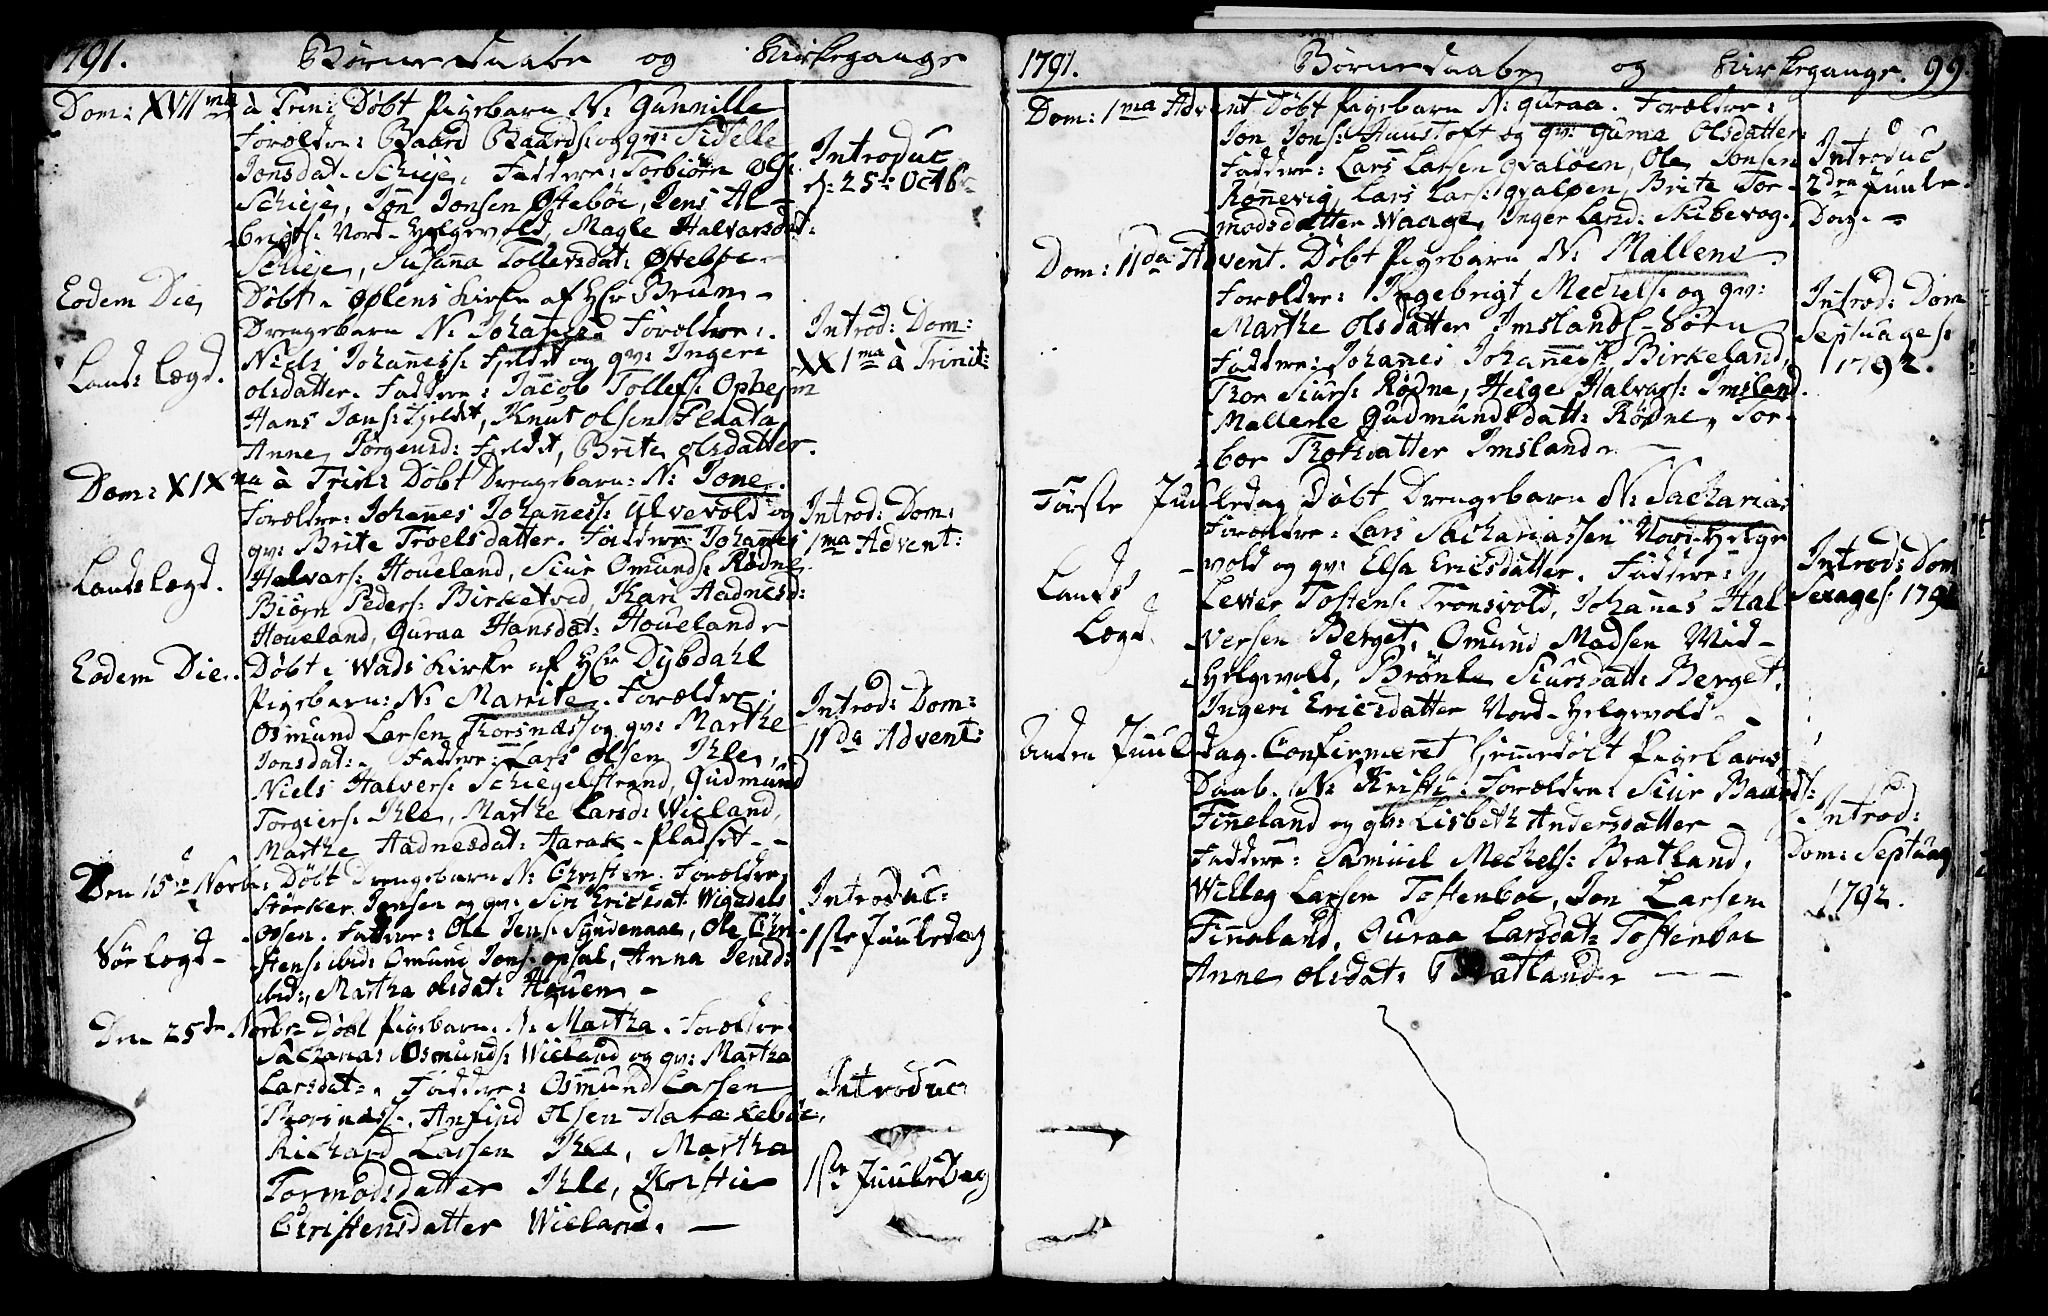 1791. Børnedaabe og Kirkegange
Dom: XVII ma à Trin: Døbt Pigebarn N: Gunnille
Forældre: Baard Baards: og qv: Sidselle
Jonsdat. Schieje, Faddere: Torbiørn Ols:
Schieje, Jon Jonsen Østebøe, Jens Al-
brigts: Nord-Helgevold, Magle Halvarsdat:
Schieje, Susanna Tollevsdat: Østebøe
Introduc
d: 25de Octbr
Eodem Die
Døbt i Ølens Kirke af Hr Brun -
Drengebarn N: Johannes Forældre:
Lands Lægd.
Niels Johaness: Fieldet og qv: Ingeri
olsdatter. Faddere: Jacob Tollefs: Ophejm
Hans Jans: Fieldet, Knut olsen Flaata
Anne Jørgensd: Fieldet, Brite olsdatter.
Introd: Dom:
XX1ma à Trinit:
Dom: XIX na à Trin: Døbt Drengebarn: N: Jone.
Forældre: Johannes Johaness: Ulvevold og
qv: Brite Troelsdatter. Faddere: Johannes
Lands Lægd.
Halvars: Houeland, Siur Omunds: Rødne
Biørn Peders: Birketved, Kari Aadnesd:
Houeland, Guraa Hansdat: Houeland
Introd: Dom:
1ma Advent:
Eodem Die.
Døbt i Wads Kirke af Hr Dybdahl
Pigebarn: N: Marrite. Forældre:
Osmund Larsen Thorsnæs og qv: Marthe
Jonsdat:. Faddere: Lars Olsen Ihle,
Niels Halvers: Schiegelstrand, Gudmund
Torgiers: Ihle, Marthe Larsd: Wieland,
Marthe Aadnesdat: Aarak-Pladset - -
Introd: Dom:
11da Advent:
Den 15de Novbr: Døbt Drengebarn N: Christen. Forældre
Størker Jensen og qv: Siri Ericsdat Wigedels
Sør Lægd -
osen. Faddere: Ole Jens: Syndenaae, Ole Chri-
stens: ibid: Omund Jons: opsal, Anna Jensd:
ibid:, Martha olsdat: Houen -
Introduc:
1ste Juuledag
Den 25de Novbr Døbt Pigebarn. N: Martha. Forældre:
Sacharias Osmunds: Wieland og qv: Martha
Larsdat:. Faddere: Osmund Larsen
Thorsnæs:, Anfind Olsen Aarekebøe,
Richard Larsen Ihle, Martha
Tormodsdatter Ihle, Kristie
Christensdatter Wieland. -
Introduc:
1ste Juuledag
1791. Børnedaabe og Kirkegange. 99.
Dom: 1ma Advent Døbt Pigebarn N: Guraa. Forældre:
Jon Jons: Huustoft og qv: Gunna Olsdatter:
Faddere: Lars Larsen Qvaløen, Ole Jonsen
Rønnevig, Lars Lars: Qvaløen, Brite Tor-
modsdatter Waage, Inger Larsd: Skibevog.
Introduc
2den Juule
Dag. -
Dom: 11da Advent. Døbt Pigebarn N: Mallene.
Forældre: Ingebrigt Mechels: og qv:
Marthe Olsdatter Imslands-Søen
Faddere: Johanes Johannes: Birkeland,
Thor Siurs: Rødne, Helge Halvars: Imsland.
Mallene Gudmundsdatt: Rødne, Tor-
bor Thorsdatter Imsland. -
Introd: Dom
Septuages:
1792.
Første Juuledag Døbt Drengebarn N: Sacharias
Forældre: Lars Sachariassen Nord-Helge
vold og qv: Elsa Ericsdatter. Faddere:
Lands
Lægd.
Lever Tostens: Tronsvold, Johannes Hal-
versen Berget, Omund Madsen Mid-
Helgevold, Brønle Siursdatt: Berget,
Ingeri Ericsdatter Nord-Helgevold -
Introd: Dom
Sexages: 1792
Anden Juuledag. Confirmeret hjemmedøbt Pigebarns
Daab. N: Kristi: Forældre: Siur Baards:
Finneland og qv: Lisbeth Andersdatter -
Faddere: Samuel Mechels: Bratland,
Willeg Larsen Tostenboe, Jon Larsen
Finneland, Guraa Larsdat: Tostenboe
Anne olsdat: Bratland. - -
Introd:
Dom: Septuag
1792.